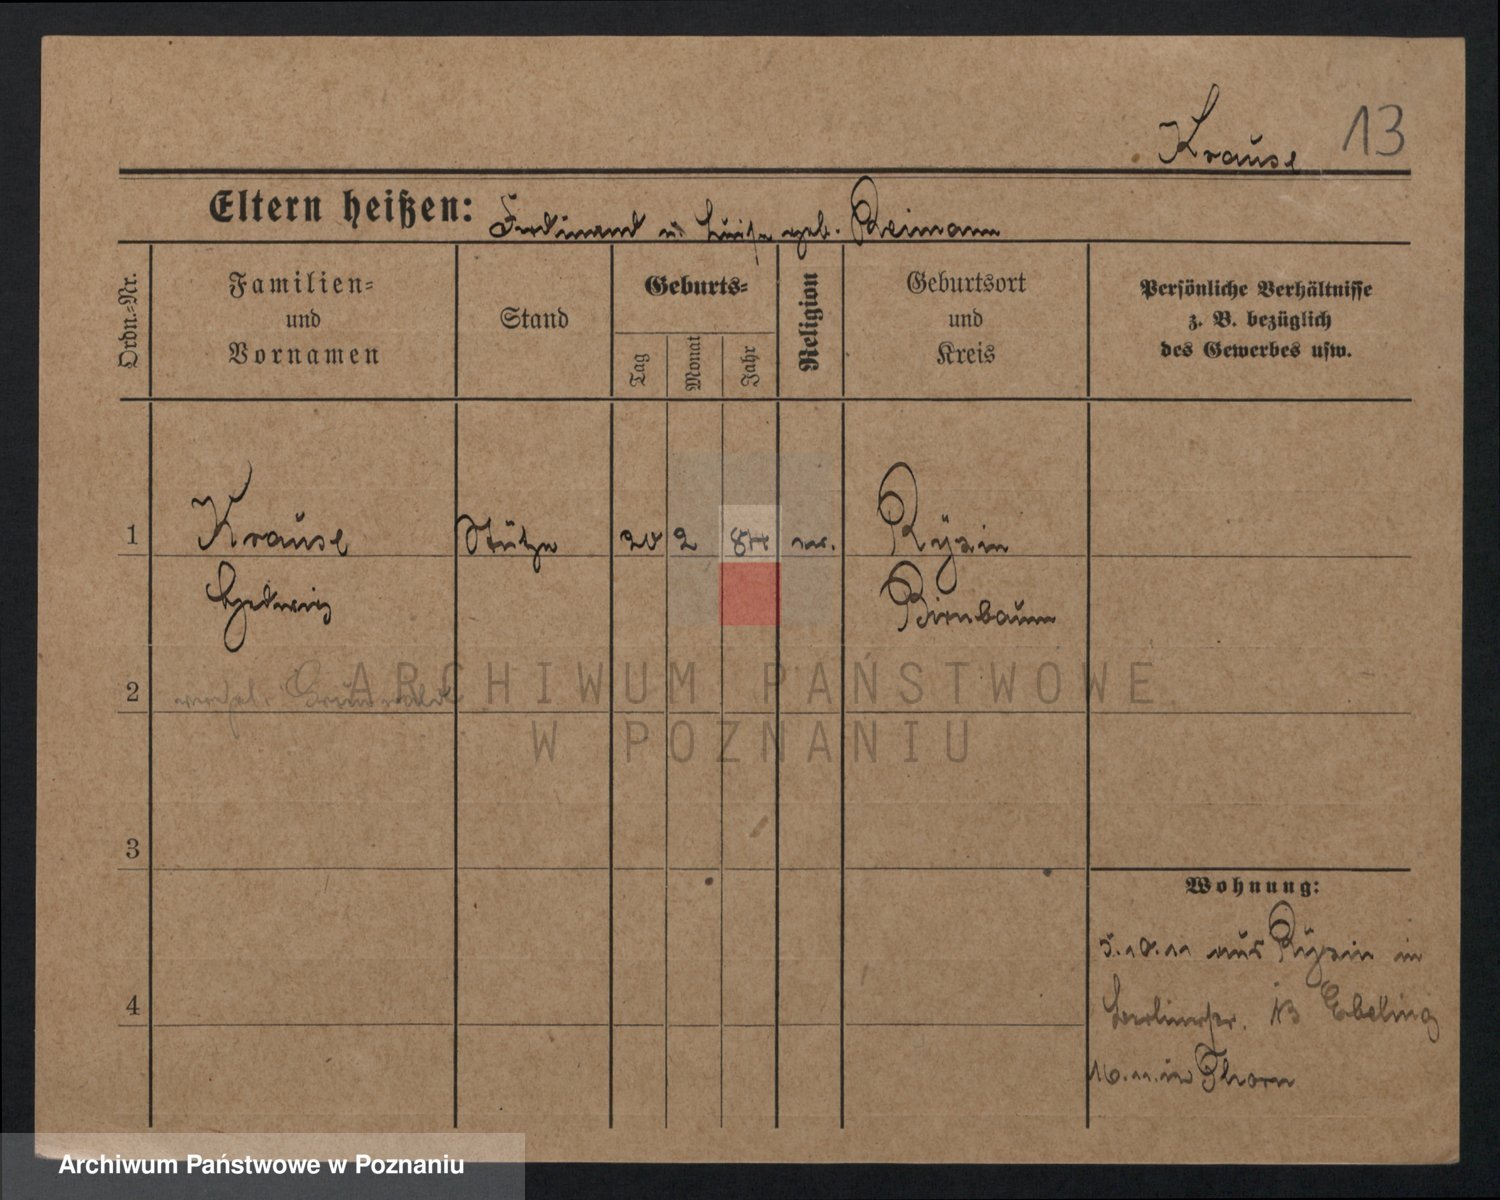 Krause 13
Eltern heißen: Ferdinand u. Luise geb. Reimann
Ordn.-Nr.
Familien-
und
Vornamen
Stand
Geburts-
Tag
Monat
Jahr
Religion
Geburtsort
und
Kreis
Persönliche Verhältnisse
z. B. bezüglich
des Gewerbes usw.
1 Krause Stütze 20 2 84 ev. Ryzin
Hedwig Birnbaum
2
3
4
Wohnung:
5.10.11 aus Ryzin in
Berlinerstr. 13 Ebeling
16.11. in Thorn
ARCHIWUM PAŃSTWOWE
W POZNANIU
Archiwum Państwowe w Poznaniu